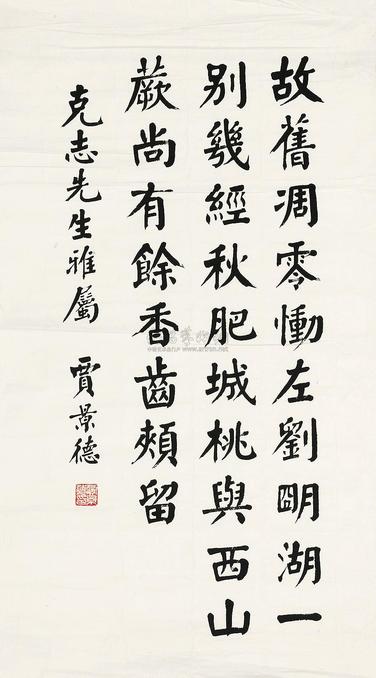 故舊凋零慟左劉明湖一
別幾經秋肥城桃與西山
蕨尚有餘香齒頰留
克志先生雅屬 賈景德